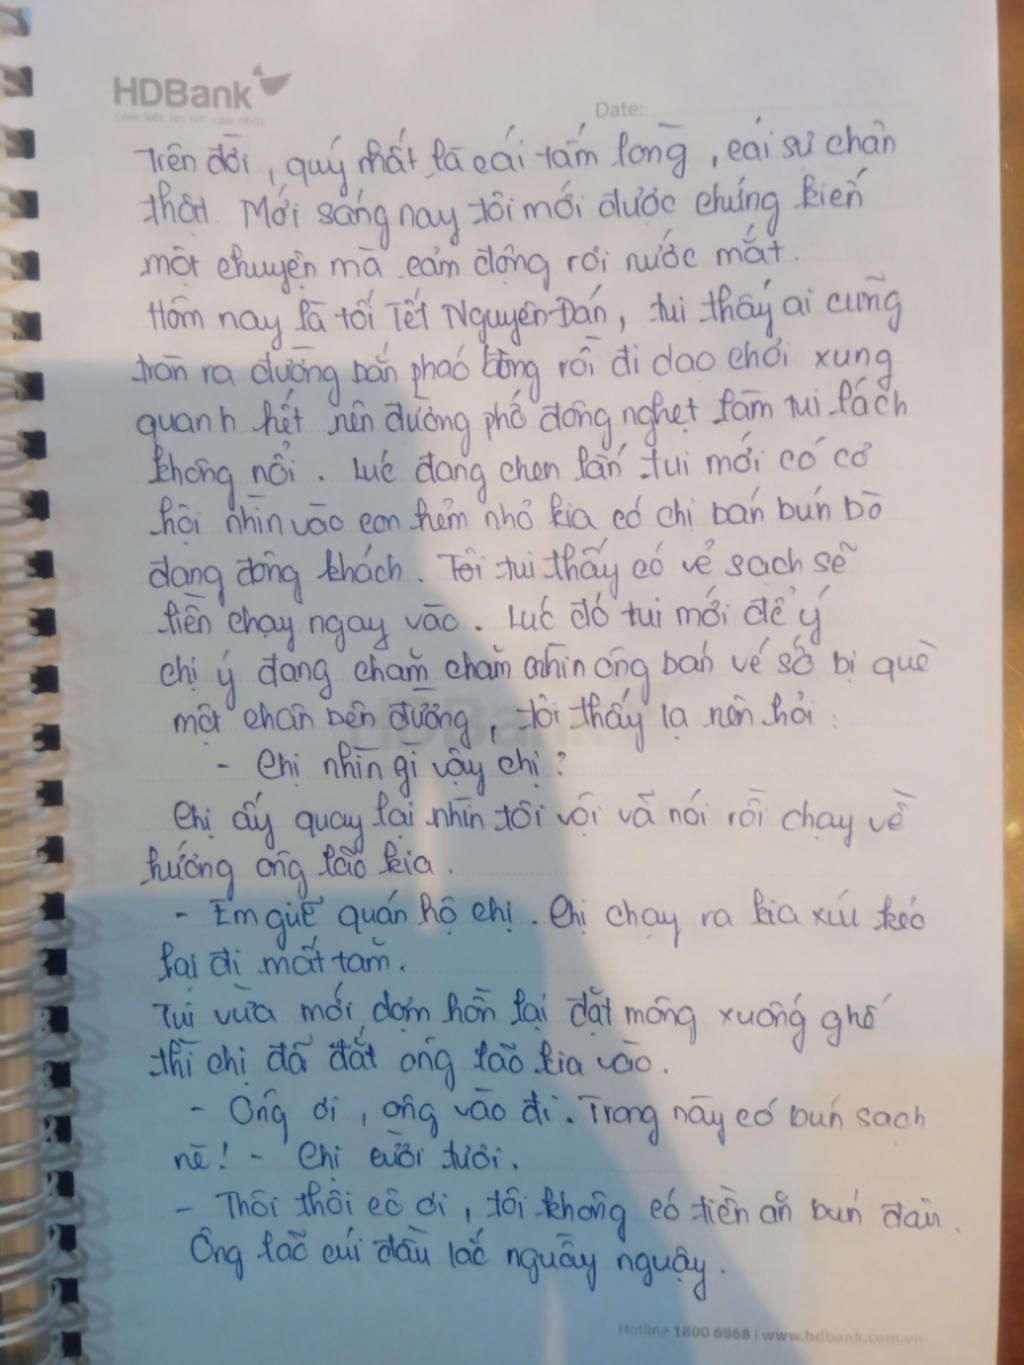 HDBank
Cam kết lợi ích cao nhất
Date:
Trên đời, quý nhất là cái tấm lòng, cái sự chân
thật. Mới sáng nay tôi mới được chứng kiến
một chuyện mà cảm động rơi nước mắt.
Hôm nay là tối Tết Nguyên Đán, tui thấy ai cũng
tràn ra đường bắn pháo bông rồi đi dạo chơi xung
quanh hết nên đường phố đông nghẹt làm tui lách
không nổi. Lúc đang chen lấn tui mới có cơ
hội nhìn vào con hẻm nhỏ kia có chị bán bún bò
đang đông khách. Tôi tui thấy có vẻ sạch sẽ
liền chạy ngay vào. Lúc đó tui mới để ý
chị ý đang chằm chằm nhìn ông bán vé số bị què
một chân bên đường, tôi thấy lạ nên hỏi:
- Chị nhìn gì vậy chị?
Chị ấy quay lại nhìn tôi vội vã nói rồi chạy về
hướng ông lão kia.
- Em giữ quán hộ chị. Chị chạy ra kia xíu kẻo
lại đi mất tăm.
Tui vừa mới dợm hồn lại đặt mông xuống ghế
thì chị đã dắt ông lão kia vào.
- Ông ơi, ông vào đi. Trong này có bún sạch
nè! - Chị cười tươi.
- Thôi thôi cô ơi, tôi không có tiền ăn bún đâu.
Ông lão cúi đầu lắc nguầy nguậy.
HDBank
Hotline 1800 6868 | www.hdbank.com.vn